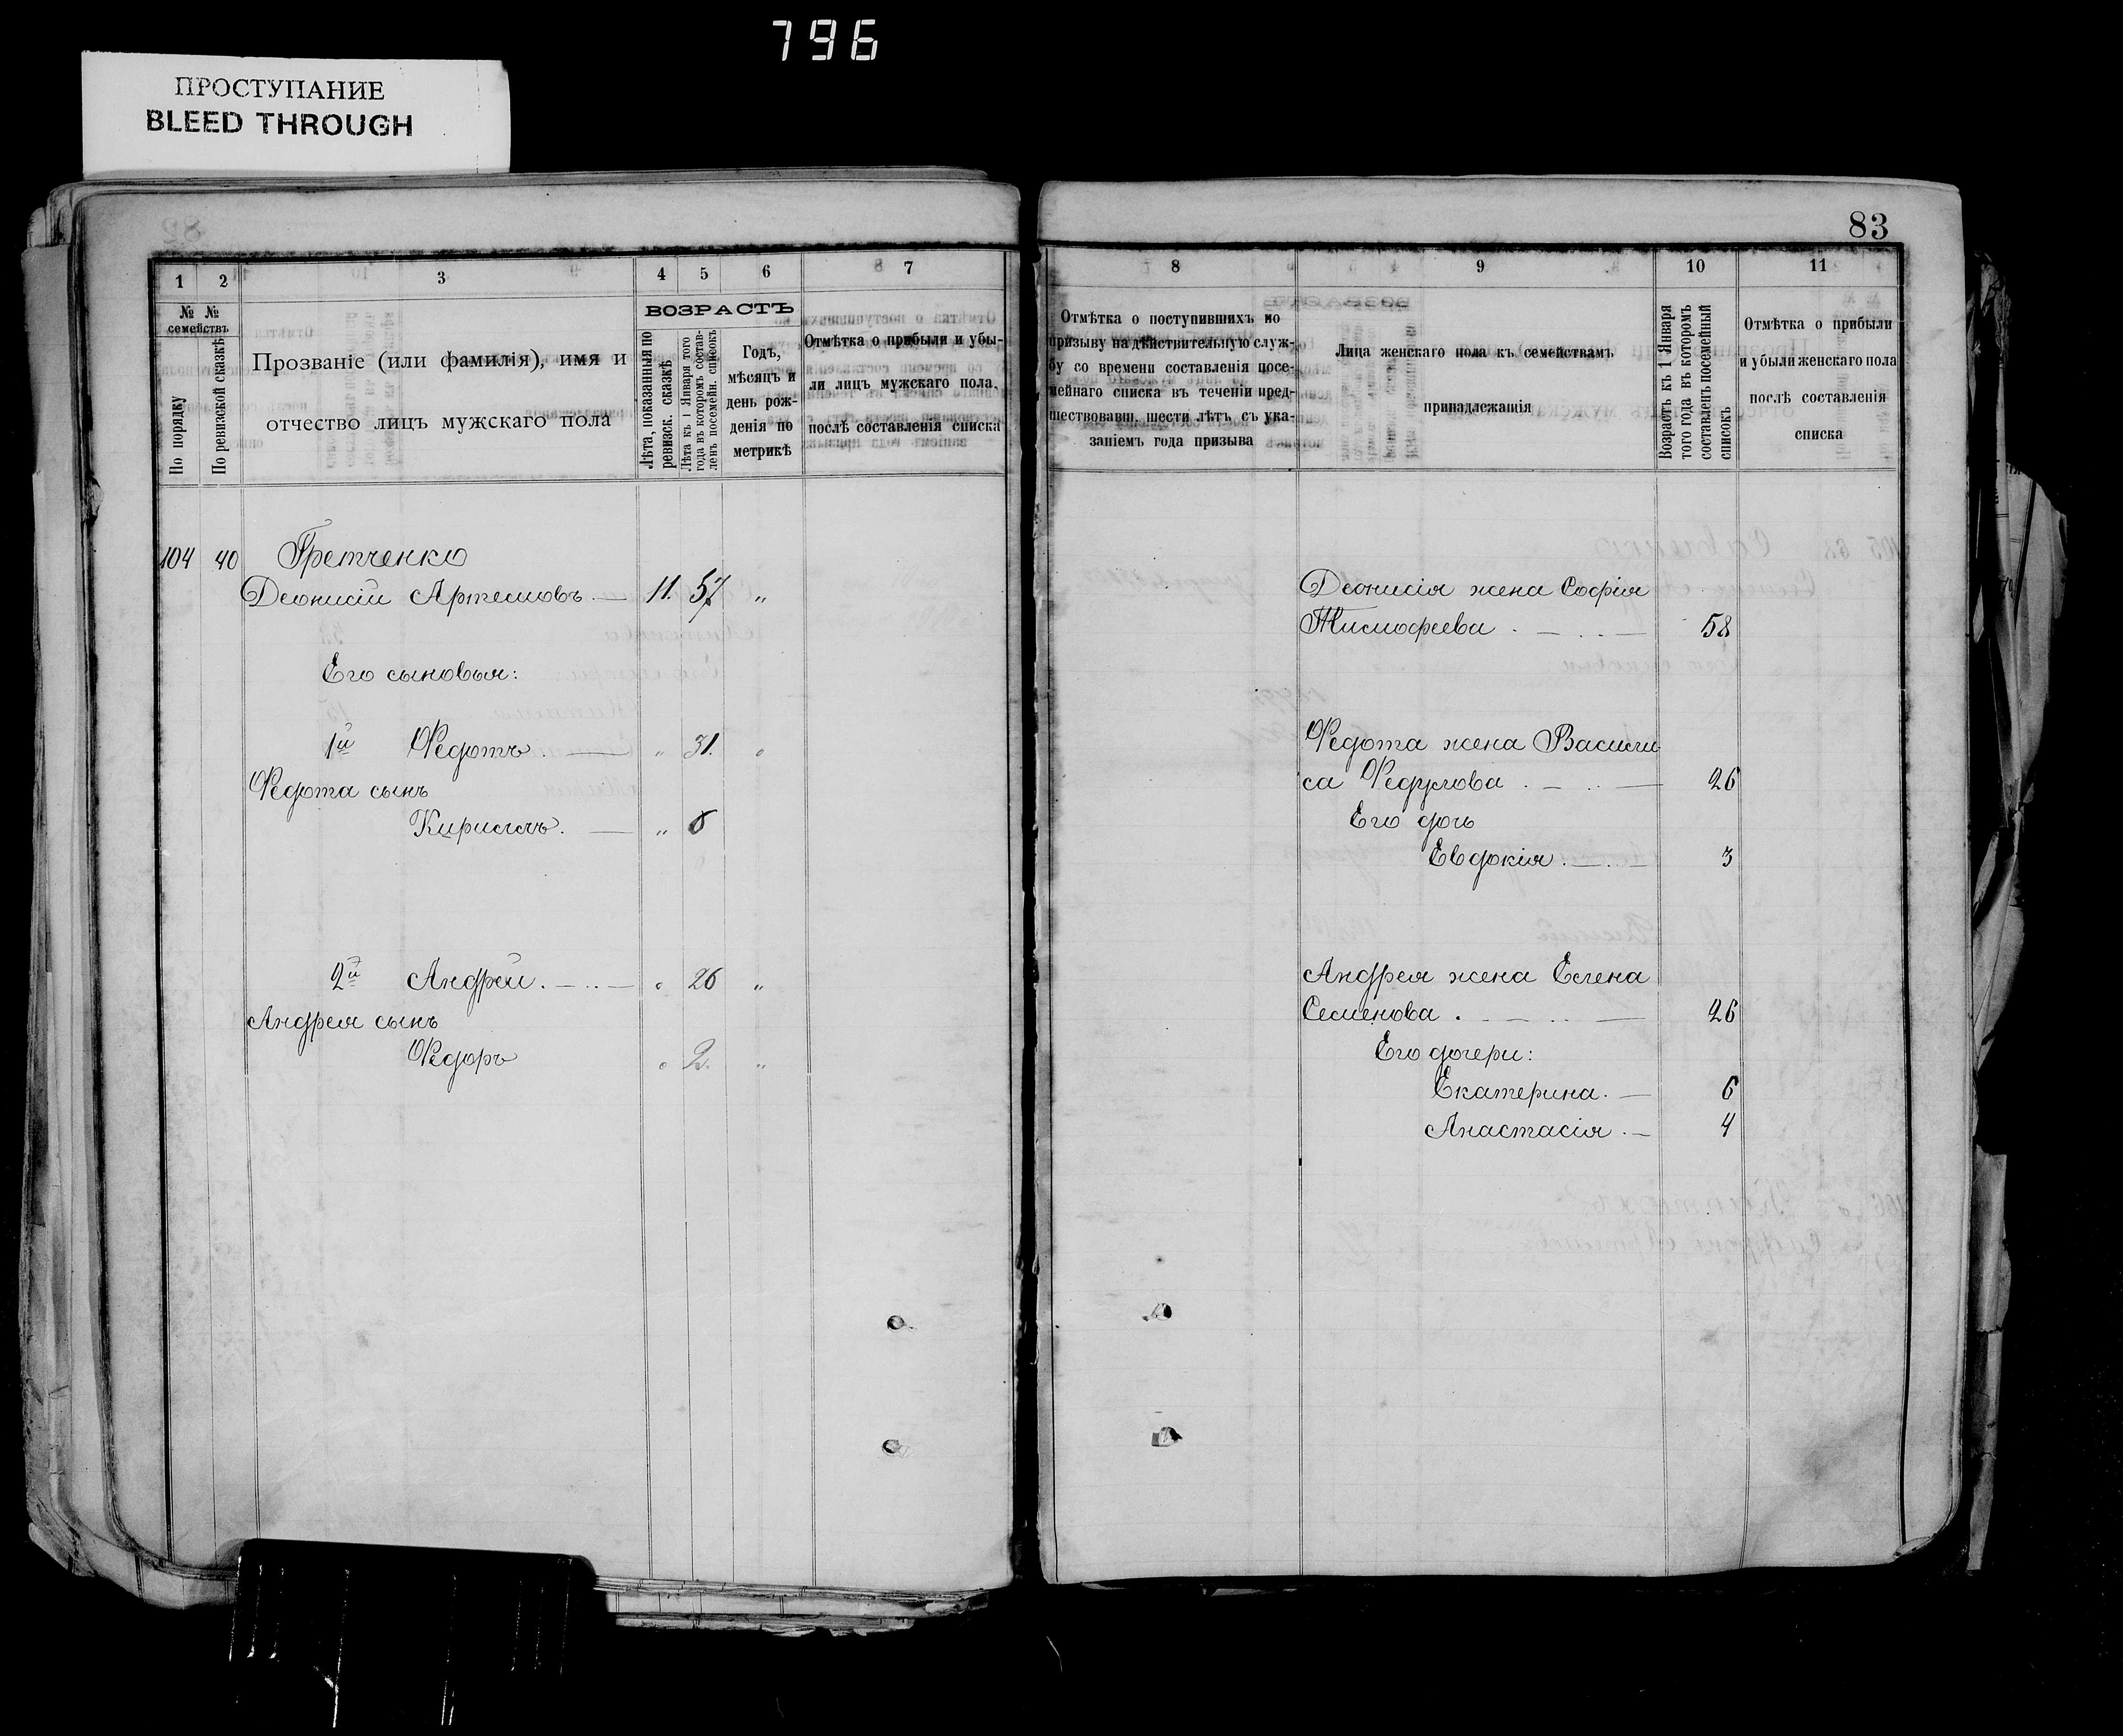 796
ПРОСТУПАНИЕ
BLEED THROUGH
83
1 2 3 4 5 6 7
№ № семействъ
По порядку
По ревизской сказкѣ
Прозваніе (или фамилія), имя и
отчество лицъ мужскаго пола
ВОЗРАСТЪ
Лѣта, показанныя по
ревизск. сказкѣ
Лѣта къ 1 Января того
года въ которомъ состав-
ленъ посемейн. списокъ
Годъ,
мѣсяцъ и
день рож-
денія по
метрикѣ
Отмѣтка о прибыли и убы-
ли лицъ мужскаго пола,
послѣ составленія списка
104 40 Гретченко
Деонисій Артемовъ. — 11. 57 „
Его сыновья:
1й Федотъ. — „ 31. „
Федота сынъ
Кириллъ. — „ 6
2й Андрей. — „ 26 „
Андрея сынъ
Федоръ „ 2. „
8 9 10 11
Отмѣтка о поступившихъ по
призыву на дѣйствительную служ-
бу со времени составленія посе-
мейнаго списка въ теченіи пред-
шествовавш. шести лѣтъ, съ ука-
заніемъ года призыва
Лица женскаго пола къ семействамъ
принадлежащія
Возрастъ къ 1 Января
того года въ которомъ
составленъ посемейный
списокъ
Отмѣтка о прибыли
и убыли женскаго пола
послѣ составленія
списка
Деонисія жена Софія
Тимофеева . — . . — 58
Федота жена Васили
са Федулова . — . . — 26
Его дочь
Евдокія . — . . — 3
Андрея жена Елена
Семенова . — . . — 26
Его дочери:
Екатерина. — 6
Анастасія. — 4